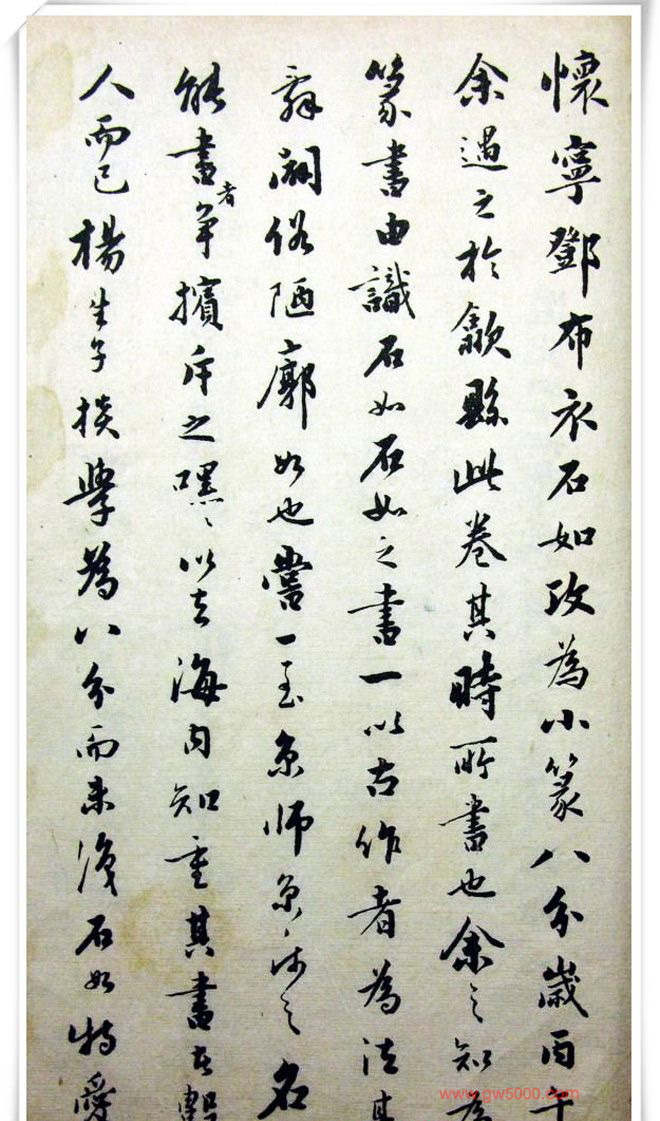 懷寧鄧布衣石如攻為小篆八分歲丙午
余遇之於歙縣此卷其時所書也余之知為
篆書由識石如石如之書一以古作者為法其
辭闢俗陋廓如也嘗一至京師京師之名
能書者争擯斥之嘿〻以去海内知重其書
人而已楊生子掞學為八分而未石如特愛
www.gw5000.com